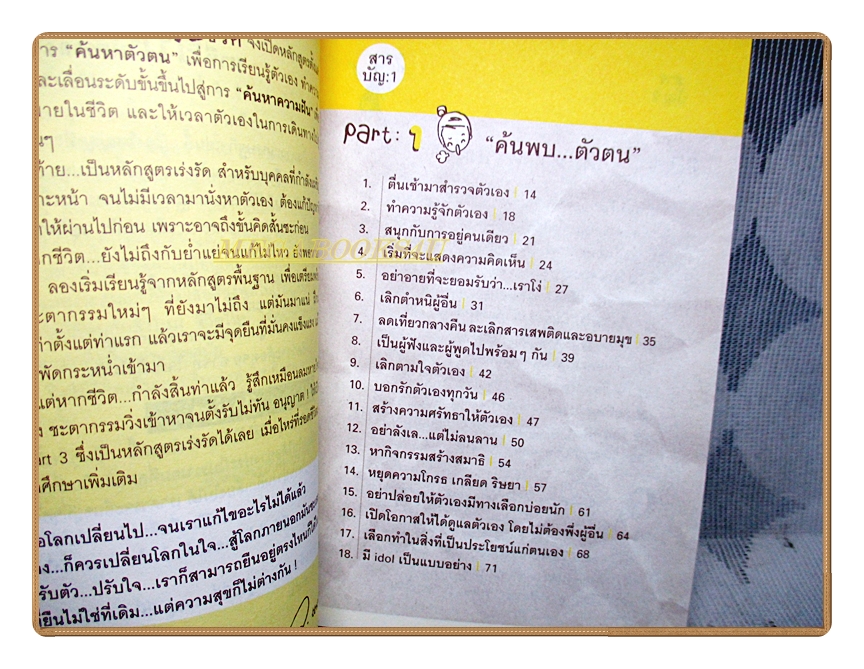 จึงเปิดหลักสูตร
การ “ค้นหาตัวตน” เพื่อการเรียนรู้ตัวเอง
และเลื่อนระดับขั้นขึ้นไปสู่การ “ค้นหาความฝัน”
ในชีวิต และให้เวลาตัวเองในการเดินทาง
...เป็นหลักสูตรเร่งรัด สำหรับบุคคลที่กำลัง
จนไม่มีเวลามานั่งหาตัวเอง ต้องแก้
ให้ผ่านไปก่อน เพราะอาจถึงขั้นคิดสั้นซะก่อน
ชีวิต...ยังไม่ถึงกับย่ำแย่จนแก้ไม่ไหว
ลองเริ่มเรียนรู้จากหลักสูตรพื้นฐาน
ชะตากรรมใหม่ๆ ที่ยังมาไม่ถึง แต่มันมาแน่
ตั้งแต่ท่าแรก แล้วเราจะมีจุดยืนที่มั่นคงแข็งแรง
พัดกระหน่ำเข้ามา
แต่หากชีวิต...กำลังสิ้นท่าแล้ว รู้สึกเหมือนลม
ชะตากรรมวิ่งเข้าหาจนตั้งรับไม่ทัน อนุญาต !
3 ซึ่งเป็นหลักสูตรเร่งรัดได้เลย เมื่อไหร่ที่
ศึกษาเพิ่มเติม
โลกเปลี่ยนไป...จนเราแก้ไขอะไรไม่ได้แล้ว
...ก็ควรเปลี่ยนโลกในใจ...สู้โลกภายนอก
ปรับตัว...ปรับใจ...เราก็สามารถยืนอยู่ตรงไหนก็ได้
ไม่ใช่ที่เดิม...แต่ความสุขก็ไม่ต่างกัน !
สาร
บัญ:1
part: 1 “ค้นพบ...ตัวตน”
1. ตื่นเช้ามาสำรวจตัวเอง | 14
2. ทำความรู้จักตัวเอง | 18
3. สนุกกับการอยู่คนเดียว | 21
4. เริ่มที่จะแสดงความคิดเห็น | 24
5. อย่าอายที่จะยอมรับว่า...เราโง่ | 27
6. เลิกตำหนิผู้อื่น | 31
7. ลดเที่ยวกลางคืน ละเลิกสารเสพติดและอบายมุข | 35
8. เป็นผู้ฟังและผู้พูดไปพร้อมๆ กัน | 39
9. เลิกตามใจตัวเอง | 42
10. บอกรักตัวเองทุกวัน | 46
11. สร้างความศรัทธาให้ตัวเอง | 47
12. อย่าลังเล...แต่ไม่ลนลาน | 50
13. หากิจกรรมสร้างสมาธิ | 54
14. หยุดความโกรธ เกลียด ริษยา | 57
15. อย่าปล่อยให้ตัวเองมีทางเลือกบ่อยนัก | 61
16. เปิดโอกาสให้ได้ดูแลตัวเอง โดยไม่ต้องพึ่งผู้อื่น | 64
17. เลือกทำในสิ่งที่เป็นประโยชน์แก่ตนเอง | 68
18. มี idol เป็นแบบอย่าง | 71